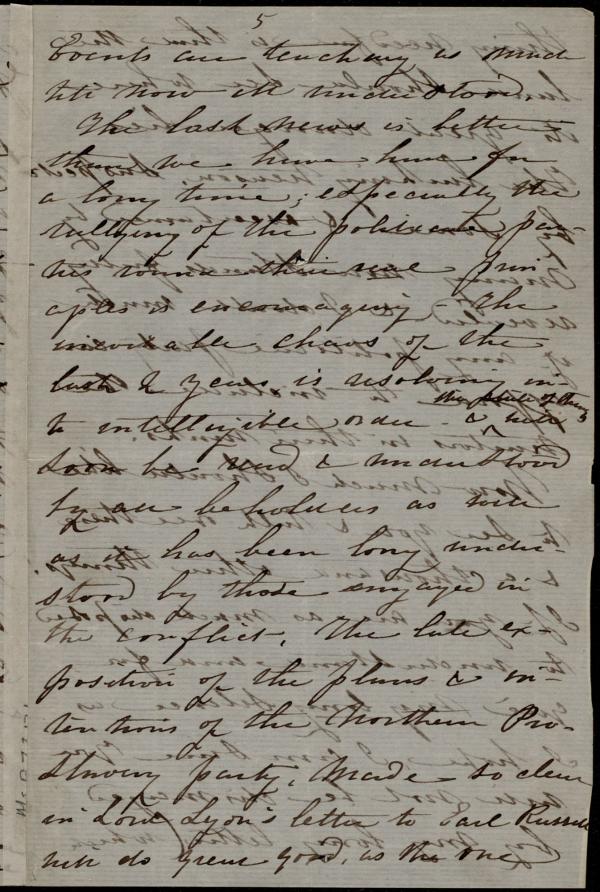 5
Events are teaching as much
now understood
The last news is better
than we have had for
a long time; especially the
rallying of the political par-
ties round their real prin
ciples is encouraging. The
inevitable chaos of the
last 2 years is resolving in-
the state of things
to intelligible order - & will
soon be read & understood
by all beholders as well
as it has been long under-
stood by those engaged in
the conflict. The late ex-
position of the plans & in-
tentions of the Northern Pro-
Slavery party, made so clear
in Lord Lyon's letter to Earl Russell
will do great good, as the one